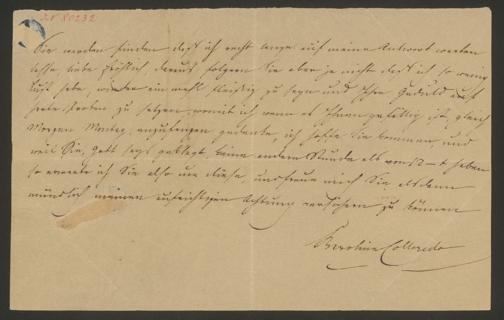 I.N 80232
Sie werden finden daß ich recht lange auf meine Antwort warten
lasse, liebe Fröhlich, daraus folgern Sie aber ja nicht daß ich so wenig
Lust habe, wieder ein mahl fleißig zu seyn und Ihre Geduld auf
harte Proben zu setzen, womit ich wenn es Ihnen gefällig ist, gleich
Morgen Montag, anzufangen gedenke, ich hoffe Sie kommen, und
weil Sie, Gott seys geklagt, keine andere Stunde als von 1/2 haben
so erwarte ich Sie also um diese, und freue mich Sie alsdann
mündlich meiner aufrichtigen Achtung versichern zu können
Caroline Colloredo